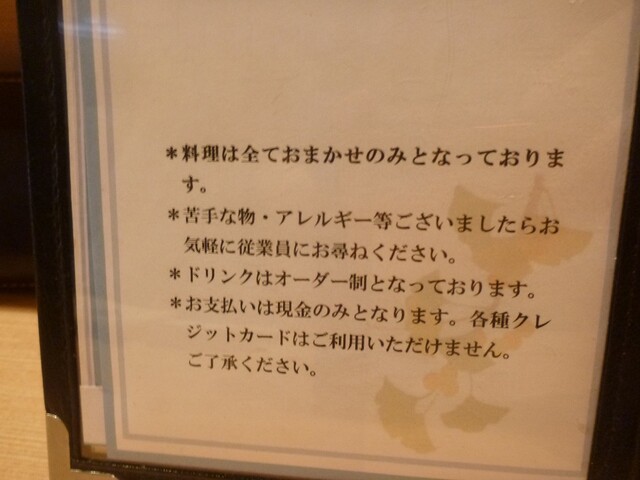 ＊料理は全ておまかせのみとなっておりま
す。
＊苦手な物・アレルギー等ございましたらお
気軽に従業員にお尋ねください。
＊ドリンクはオーダー制となっております。
＊お支払いは現金のみとなります。各種クレ
ジットカードはご利用いただけません。
ご了承ください。